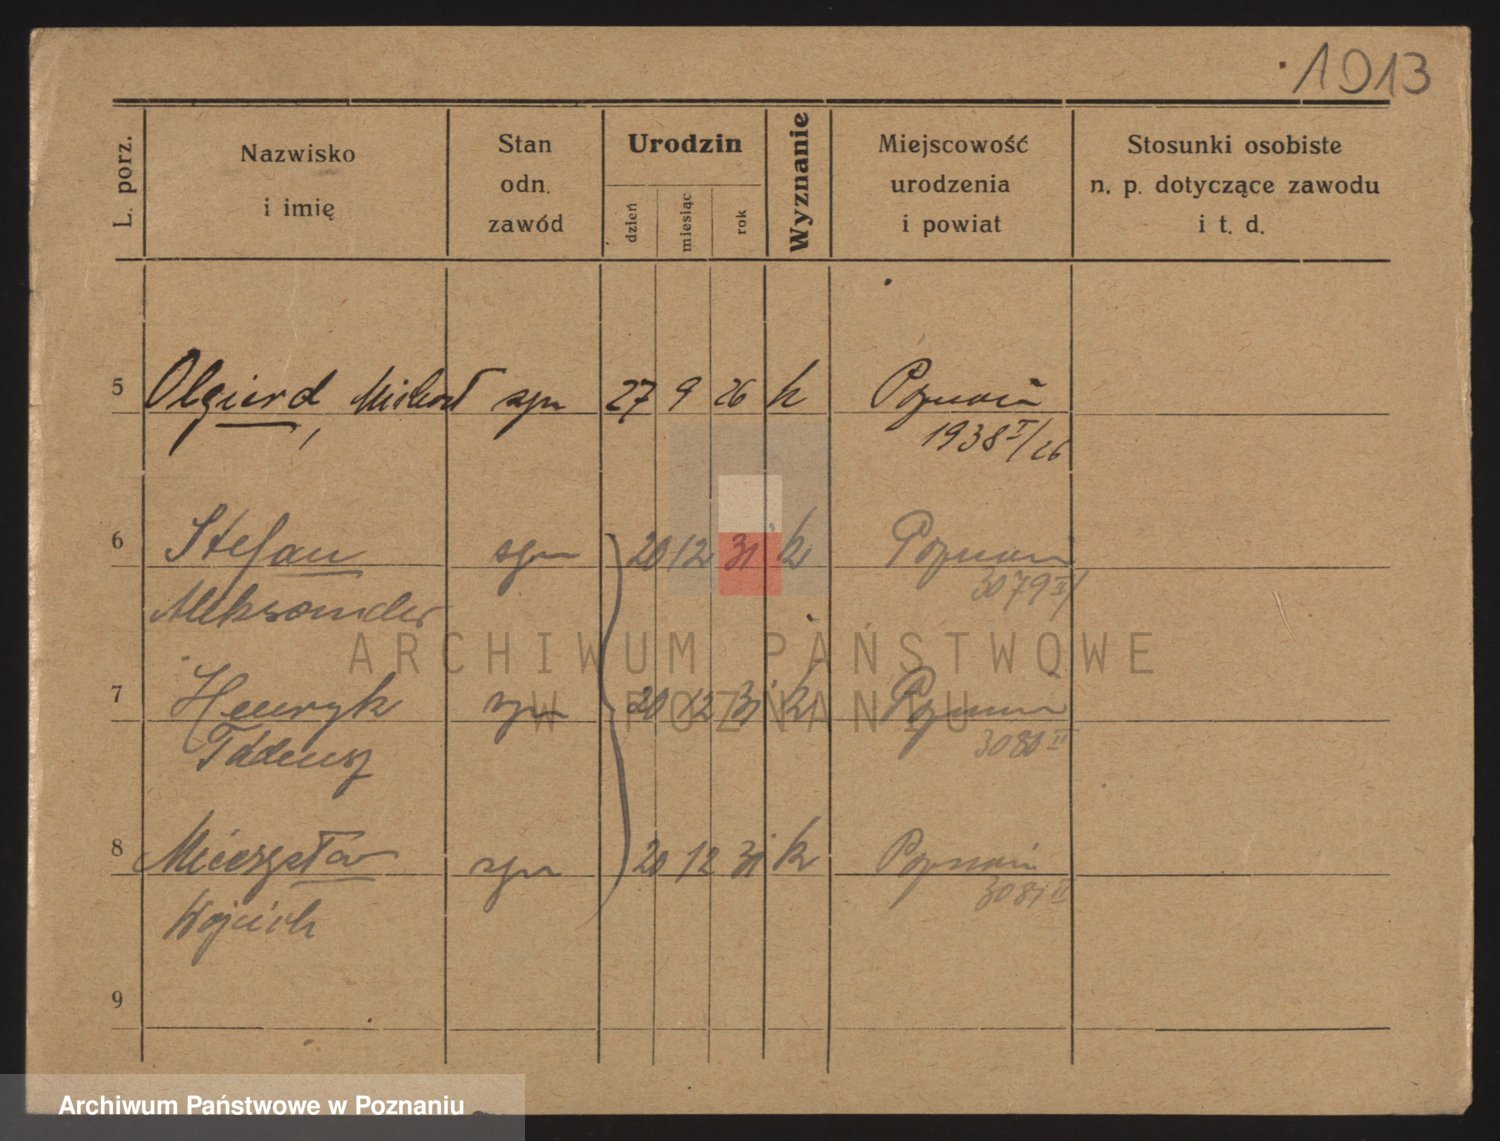 1913
L. porz.
Nazwisko
i imię
Stan
odn.
zawód
Urodzin
dzień
miesiąc
rok
Wyznanie
Miejscowość
urodzenia
i powiat
Stosunki osobiste
n. p. dotyczące zawodu
i t. d.
5 Olgierd, Michał syn 27 9 26 k Poznań
1938 I/26
6 Stefan syn 20 12 31 k Poznań
3079 II/
Aleksander
7 Henryk syn 20 12 31 k Poznań
3080 II
Tadeusz
8 Mieczysław syn 20 12 31 k Poznań
3081 II
Wojciech
9
ARCHIWUM PAŃSTWOWE
W POZNANIU
Archiwum Państwowe w Poznaniu